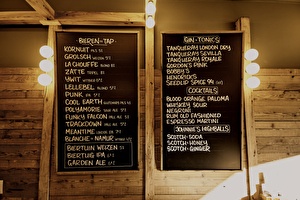 BIEREN-TAP
KORNUIT PILS 5%
GROLSCH WEIZEN
LA CHOUFFE BLOND 8%
ZATTE TRIPEL 8%
YWIT WITBIER 5%
LELLEBEL BLOND
PUNK IPA 5%
COOL EARTH
POLYAMORIE
FUNKY FALCON PALE ALE
TRACKDOWN PALE ALE
MEANTIME
BLANCHE-NAMUR
BIERTUIN WEIZEN 5%
BIERTUIG IPA
GARDEN ALE
GIN-TONICS
TANQUERAY LONDON DRY
TANQUERAY SEVILLA
TANQUERAY ROYALE
GORDON'S PINK
BOBBY'S
HENDRICKS
SEEDLIP SPICE 94
COCKTAILS
BLOOD ORANGE PALOMA
WHISKEY SOUR
NEGRONI
RUM OLD FASHIONED
ESPRESSO MARTINI
JOHNNIE'S HIGHBALLS
SCOTCH-SODA
SCOTCH-HONEY
SCOTCH-GINGER